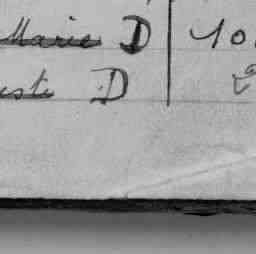 Marie D 10
uste D